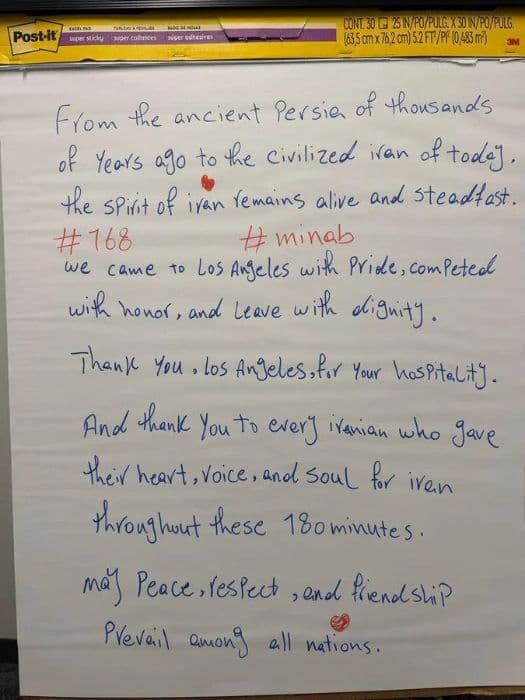 Post-it
EASEL PAD
super sticky super collantes súper adhesivos
CONT. 30 25 IN/PO/PULG. X 30 IN/PO/PULG.
(63,5 cm x 76,2 cm) 5.2 FT²/PI² (0,483 m²)
3M
From the ancient Persia of thousands
of Years ago to the civilized iran of today.
the spirit of iran remains alive and steadfast.
#168 #minab
we came to Los Angeles with Pride, competed
with honor, and Leave with dignity.
Thank you, Los Angeles, for Your hospitality.
And thank You to every iranian who gave
their heart, voice, and soul for iran
throughout these 180 minutes.
may Peace, respect, and friendship
Prevail among all nations.